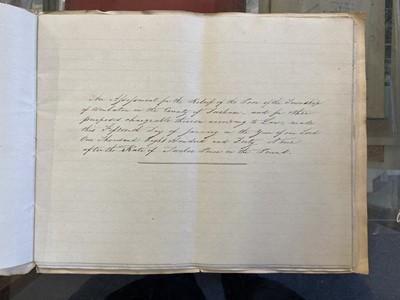 An Assessment for the Relief of the Poor of the Township
of in the County of Durham, and for other
purposes chargeable thereon according to Law, made
this Fifteenth Day of January in the Year of our Lord
One Thousand Eight Hundred and Forty Nine
after the Rate of Twelve Pence in the Pound.